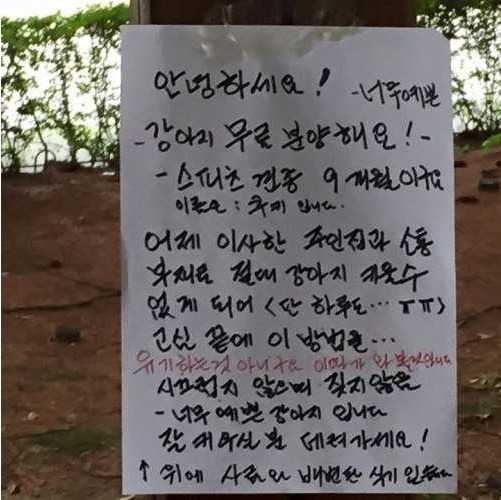 안녕하세요!
-너무예쁜
-강아지 무료 분양해요!-
- 스피츠 견종 9개월이구요
이름은 : 추피 입니다.
어제 이사한 주인집과 소통
부재로 절대 강아지 키울수
없게 되어 <단 하루도… ㅠㅠ>
고심 끝에 이 방법을…
유기하는것 아니구요 이따가 와 볼것입니다
시끄럽지 않으며 짖지않을
- 너무 예쁜 강아지 입니다
잘 키우실 분 데려가세요!
↑ 위에 사료와 배변판 식기 있습니다